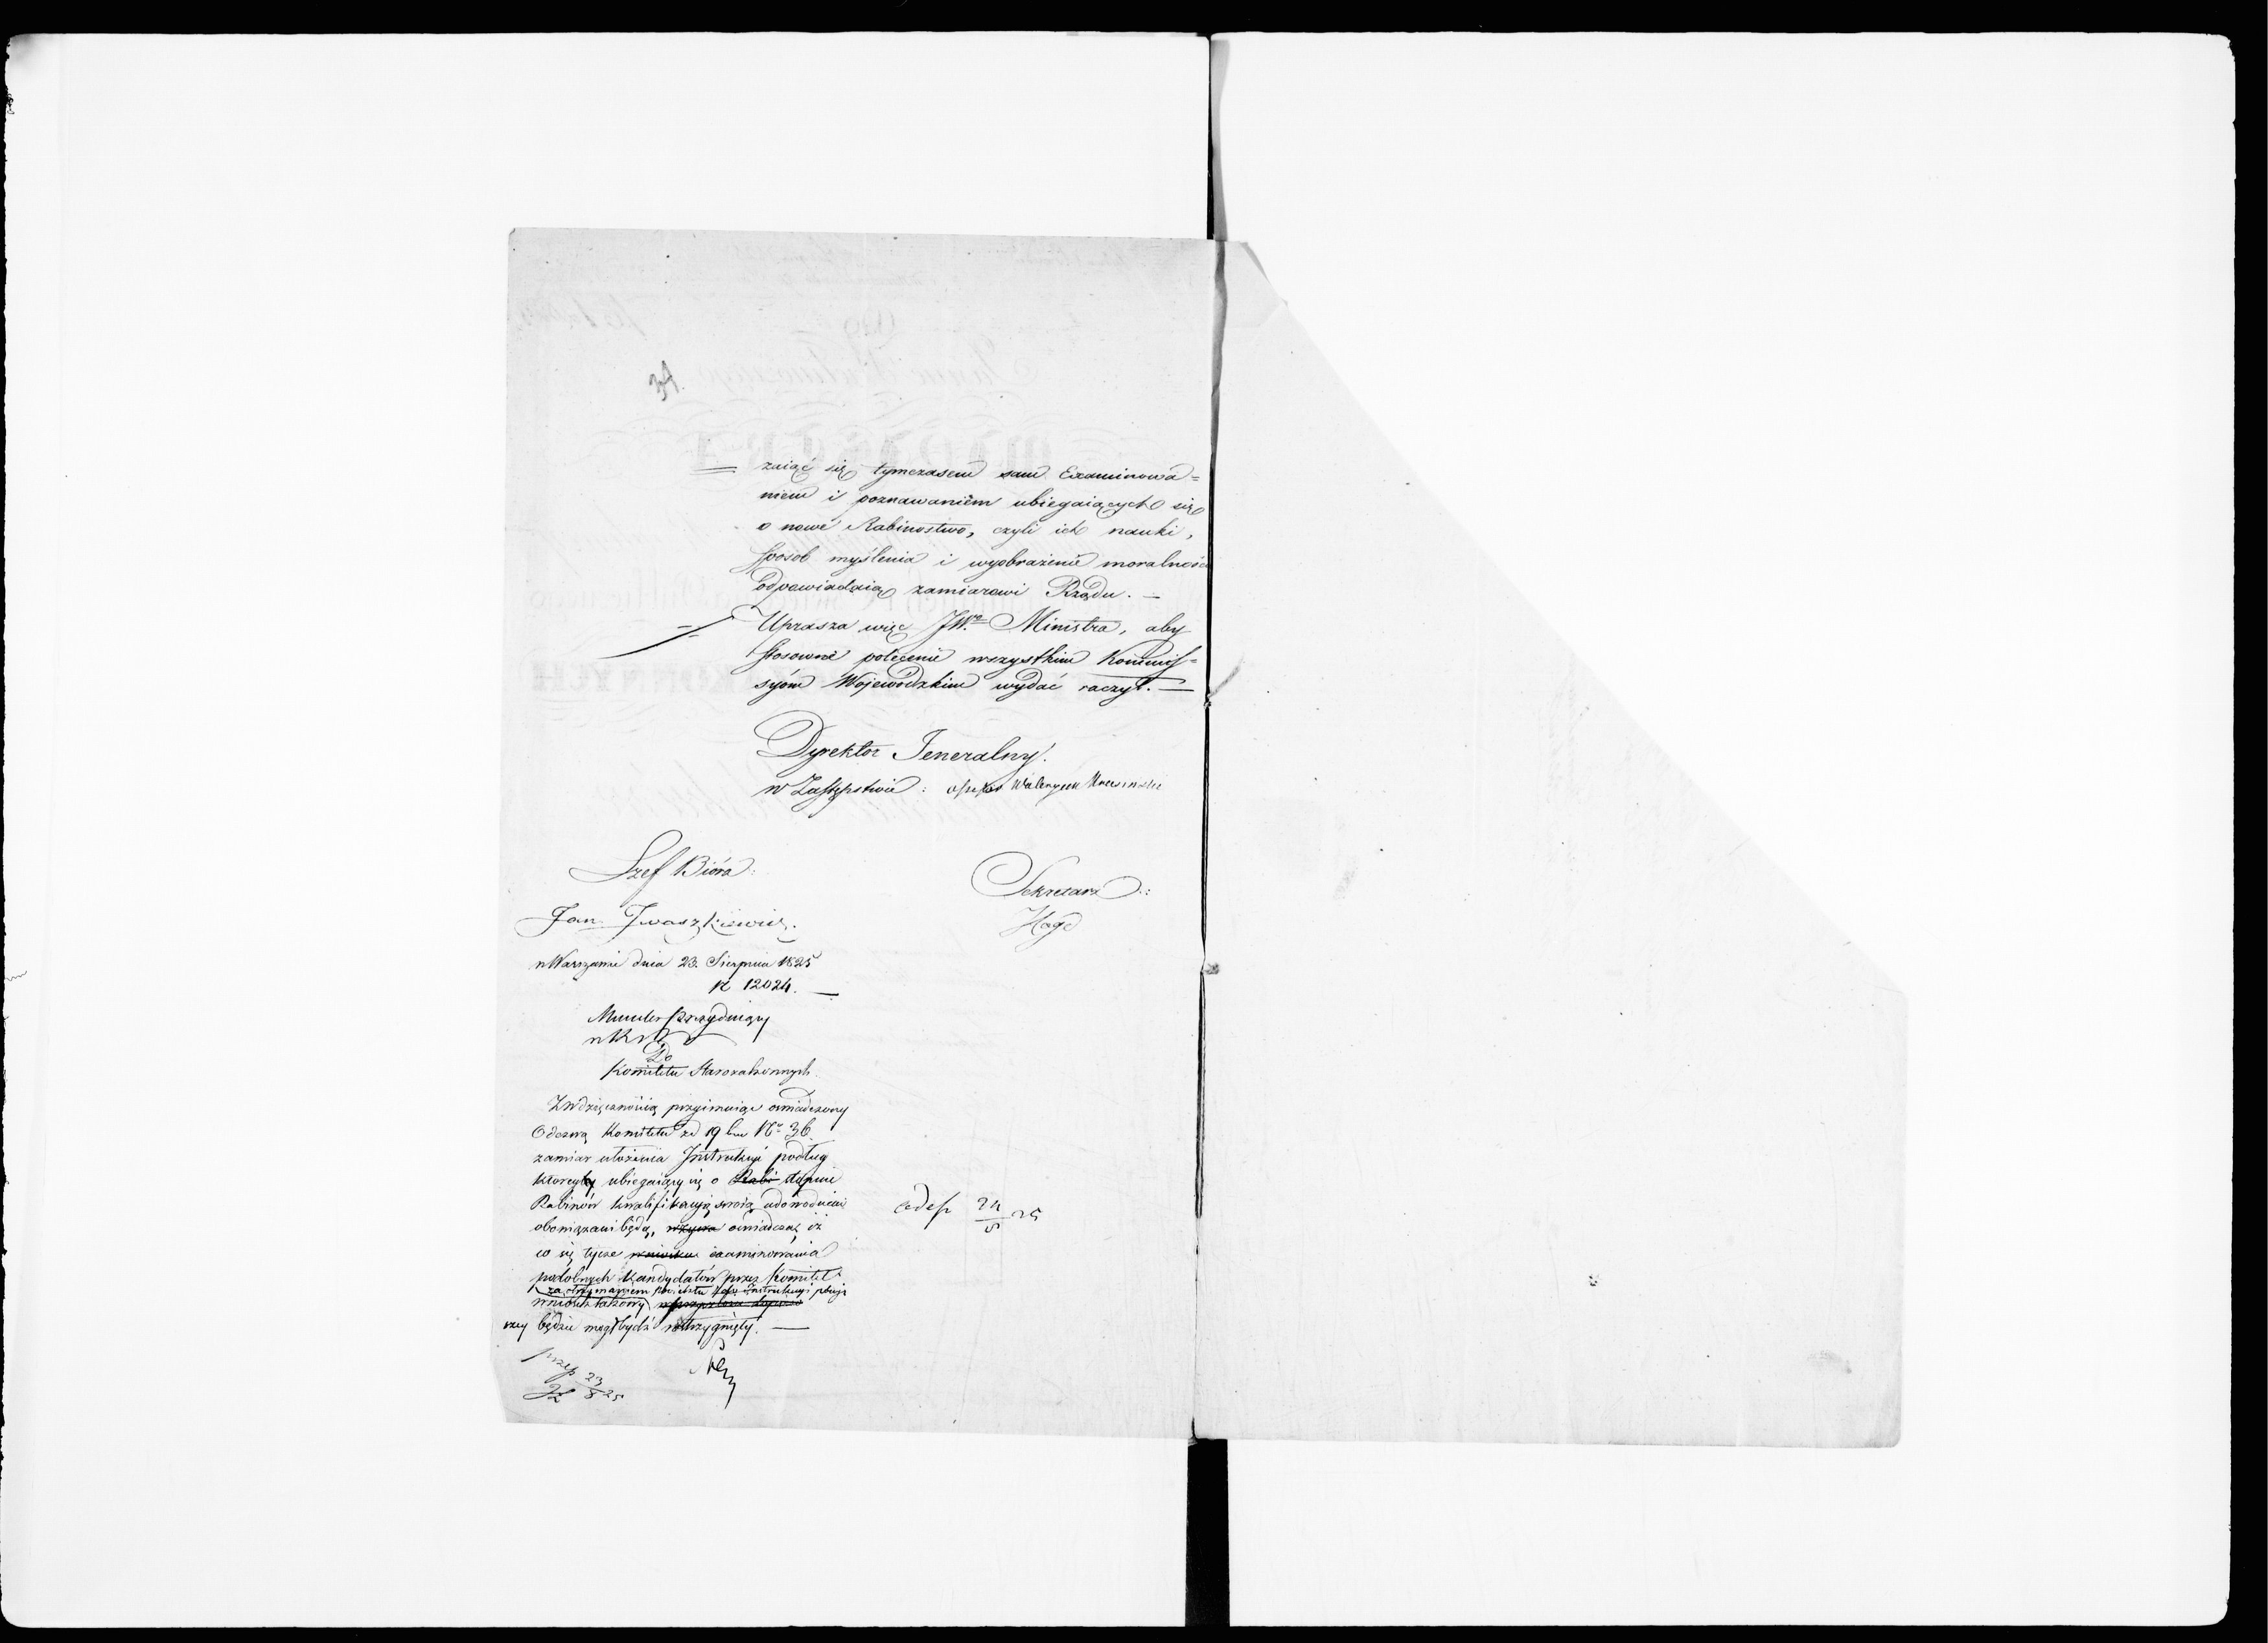 34.
zaiąć się tymczasem sam Examinowa=
niem i poznawaniem ubiegaiących się
o nowe Rabinostwo, czyli ich nauki,
sposob myślenia i wyobrażenie moralności
odpowiadaią zamiarowi Rządu. —
Uprasza więc JW. Ministra, aby
stosowne polecenie wszystkim Kommis=
syóm Wojewódzkim wydać raczył. —
Dyrektor Jeneralny.
w Zastępstwie:
Szef Bióra:
Sekretarz:
Jan Iwaszkiewicz.
Hage
w Warszawie dnia 23. Sierpnia 1825
N 12024. —
Do
Komitetu Starozakonnych.
Z wdzięcznością przyimuiąc oświadczony
Odezwą Komitetu z d 19 bm No 36.
zamiar ułożenia Instrukcyi podług
którey ubiegaiący się o Rabi stopnie
Rabinów kwalifikacyą swoią udowodnić
obowiązani będą, oświadczać iż
co się tycze examinowania
podobnych kandydatów przez Komitet
za otrzymaniem projektu tey instrukcyi
wniosek takowy
będzie mógł bydź rostrzygnięty. —
24
8 25
23
8 25